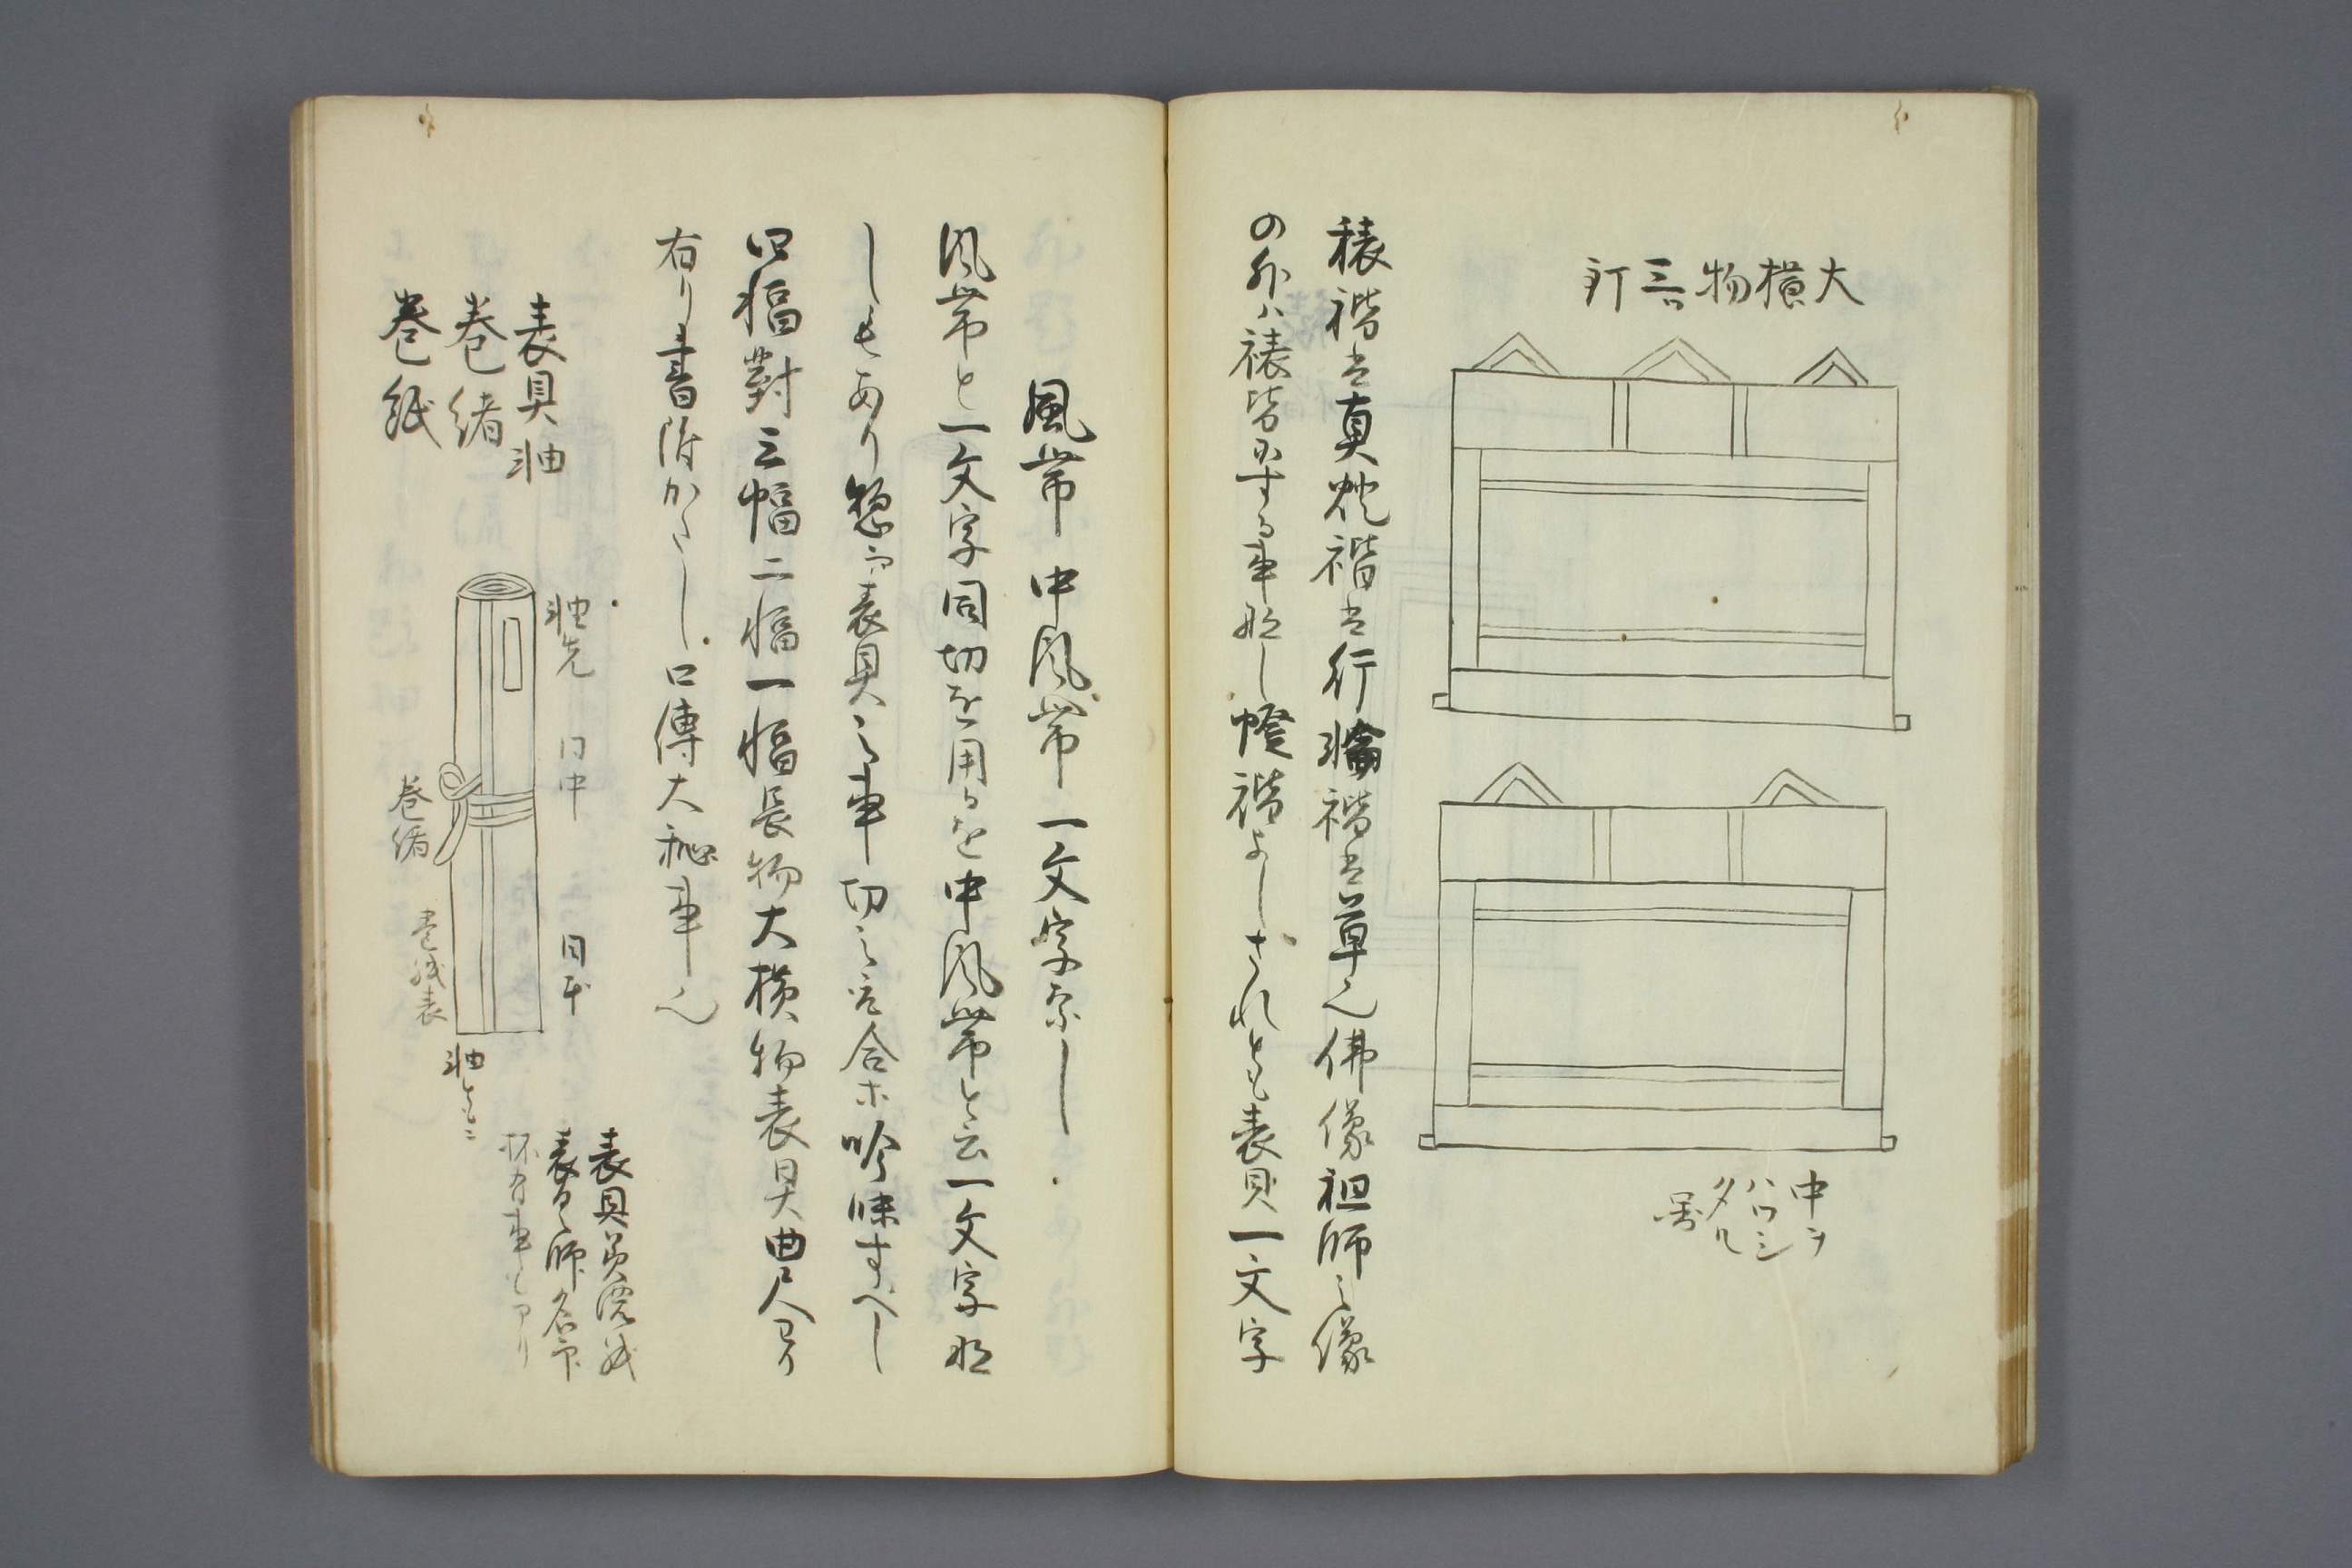 大横物三釘
中ヲ
ハツシ
タル
図
裱褙は真幒褙は行輪褙は草也佛像祖師之像
の外ハ裱皆にする事なし幢褙よしされとも表具一文字
風帯 中風帯 一文字なし
風帯と一文字同切を用るを中風帯と云一文字な
しもあり惣而表具之事切之取合ホ吟味すへし
四幅對三幅二幅一幅長物大横物表具曲尺わり
有り書附かたし口傳大秘事也
表具軸
巻緒
巻紙
軸先
同中
同下
巻緒
巻紙表
軸ともニ
表具
表具師名印
抔有事しあり